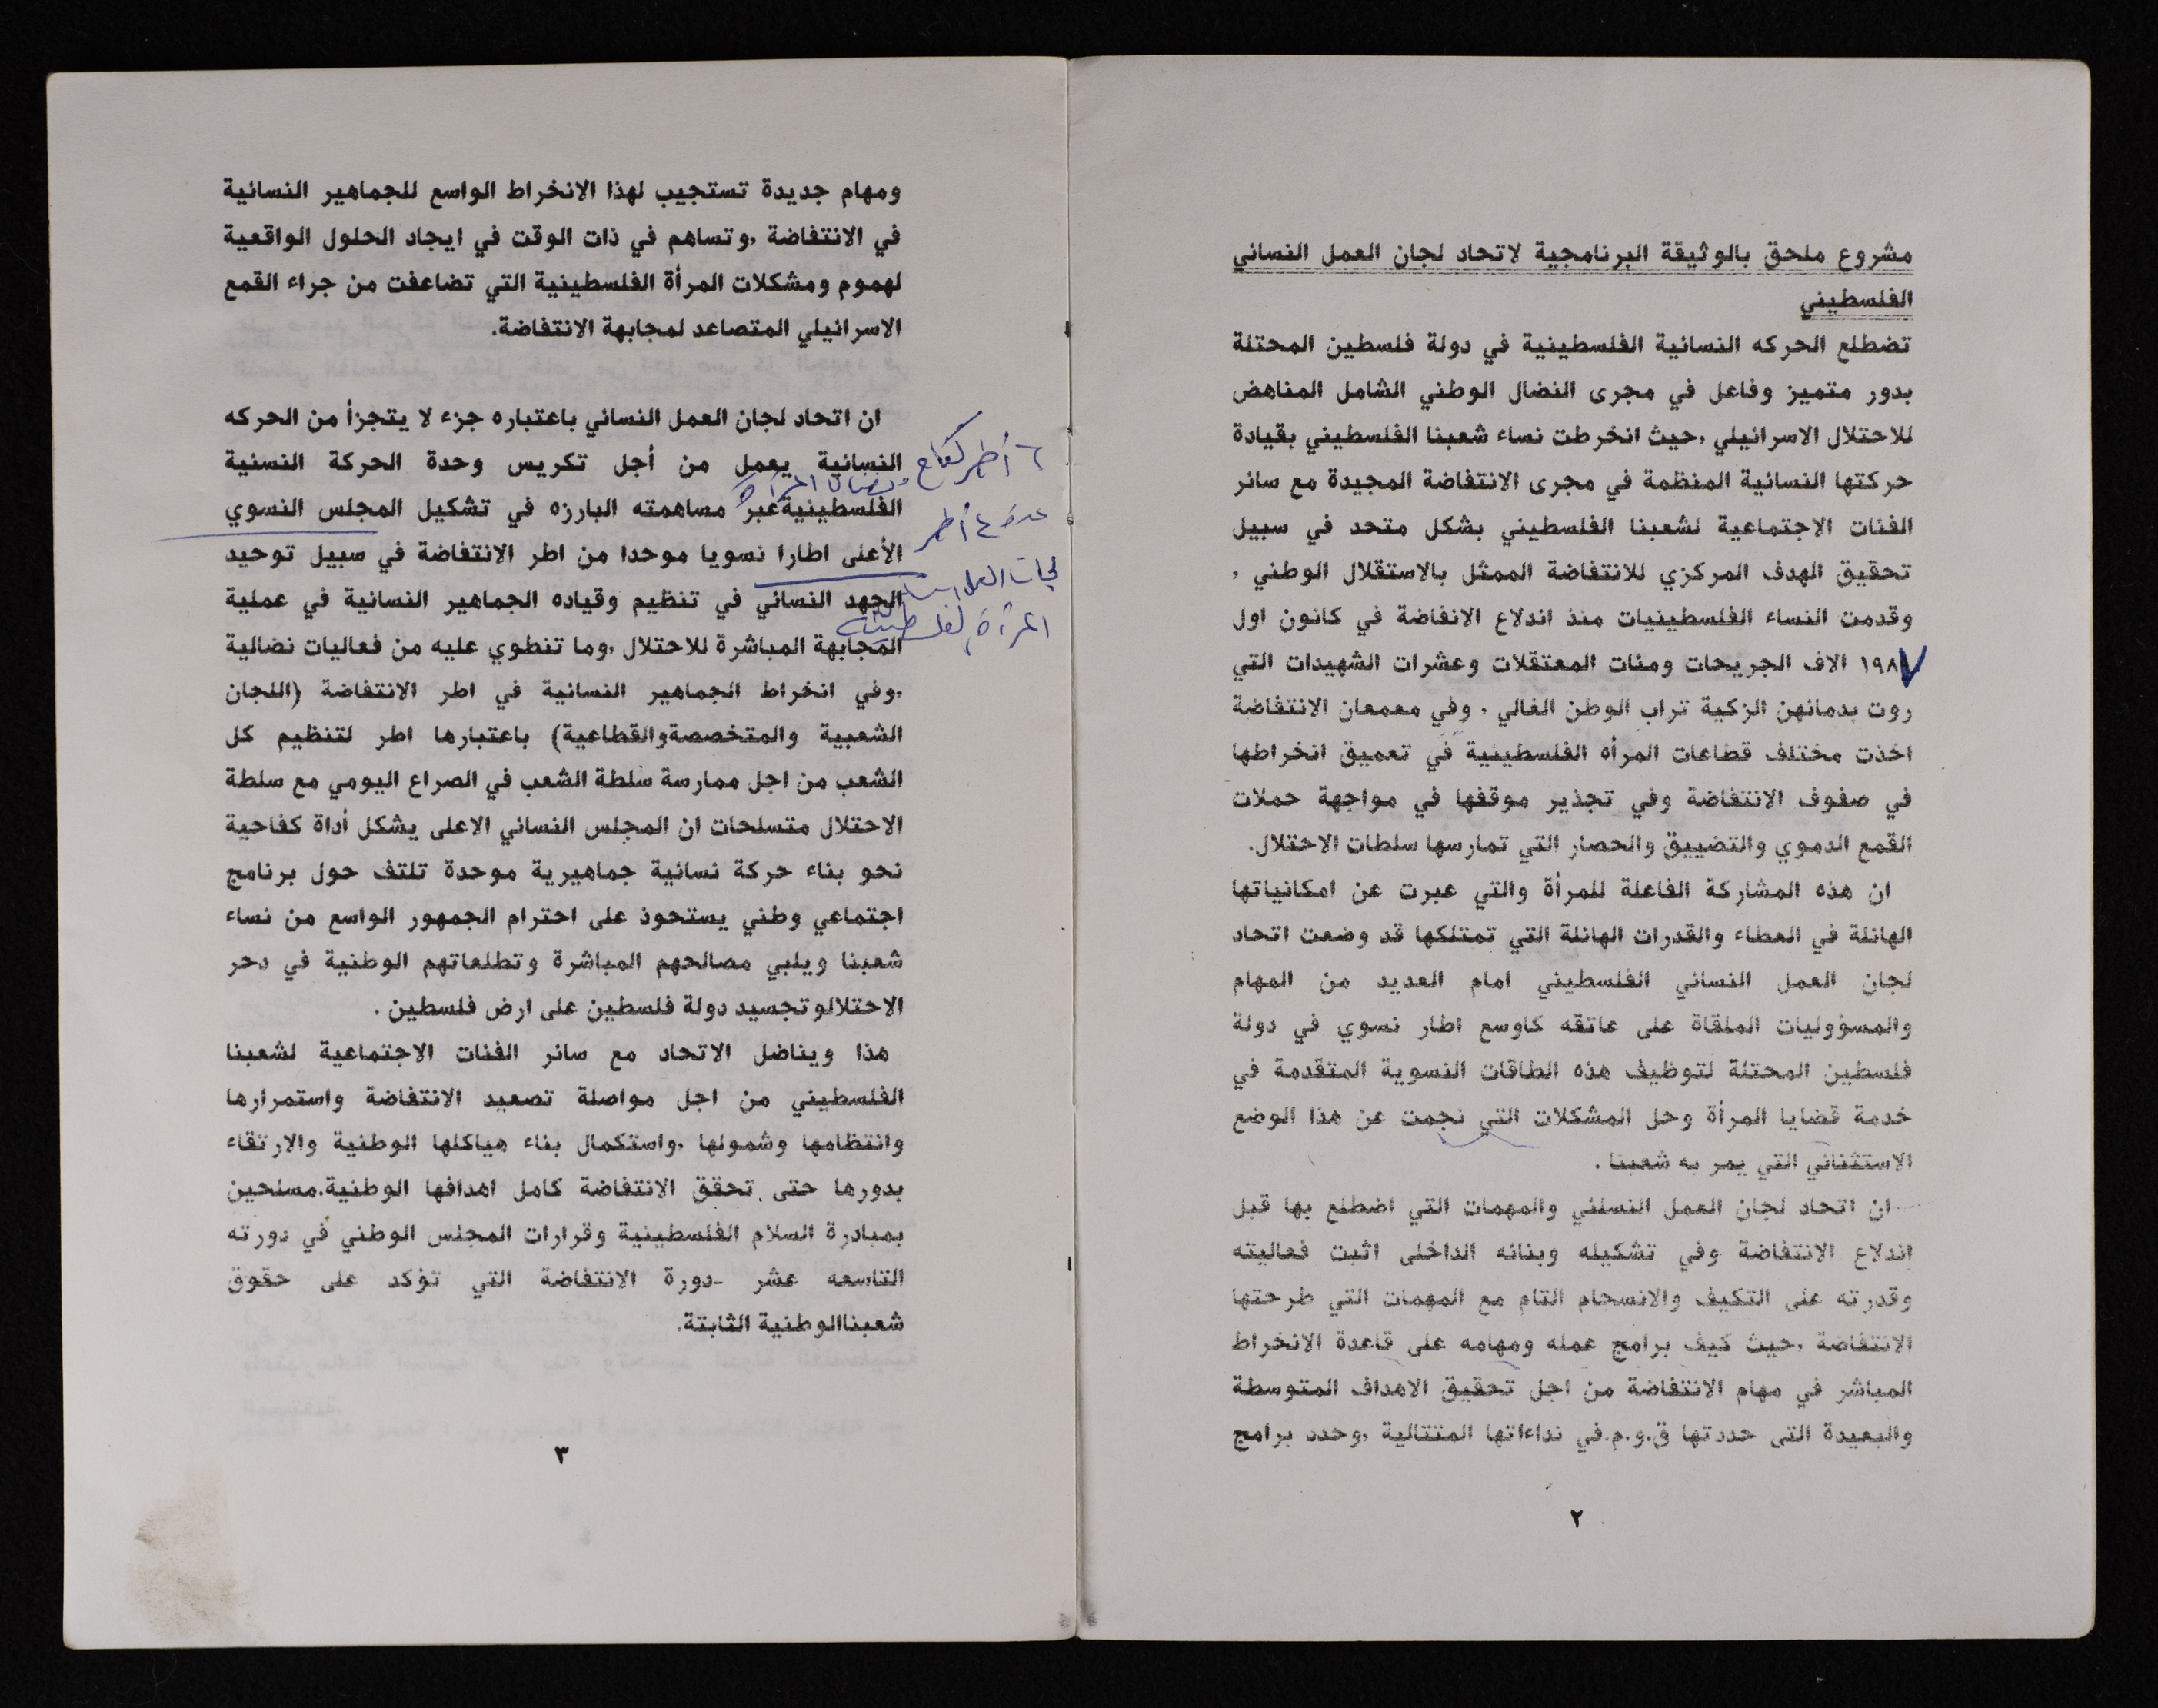 مشروع ملحق بالوثيقة البرنامجية لاتحاد لجان العمل النسائي
الفلسطيني
تضطلع الحركه النسائية الفلسطينية في دولة فلسطين المحتلة
بدور متميز وفاعل في مجرى النضال الوطني الشامل المناهض
للاحتلال الاسرائيلي ,حيث انخرطت نساء شعبنا الفلسطيني بقيادة
حركتها النسائية المنظمة في مجرى الانتفاضة المجيدة مع سائر
الفئات الاجتماعية لشعبنا الفلسطيني بشكل متحد في سبيل
تحقيق الهدف المركزي للانتفاضة الممثل بالاستقلال الوطني ,
وقدمت النساء الفلسطينيات منذ اندلاع الانفاضة في كانون اول
١٩٨٧ الاف الجريحات ومئات المعتقلات وعشرات الشهيدات التي
روت بدمائهن الزكية تراب الوطن الغالي . وفي معمعان الانتفاضة
اخذت مختلف قطاعات المرأه الفلسطينية في تعميق انخراطها
في صفوف الانتفاضة وفي تجذير موقفها في مواجهة حملات
القمع الدموي والتضييق والحصار التي تمارسها سلطات الاحتلال.
ان هذه المشاركة الفاعلة للمرأة والتي عبرت عن امكانياتها
الهائلة في العطاء والقدرات الهائلة التي تمتلكها قد وضعت اتحاد
لجان العمل النسائي الفلسطيني امام العديد من المهام
والمسؤوليات الملقاة على عاتقه كاوسع اطار نسوي في دولة
فلسطين المحتلة لتوظيف هذه الطاقات النسوية المتقدمة في
خدمة قضايا المرأة وحل المشكلات التي نجمت عن هذا الوضع
الاستثنائي التي يمر به شعبنا .
ان اتحاد لجان العمل النسلئي والمهمات التي اضطلع بها قبل
اندلاع الانتفاضة وفي تشكيله وبنائه الداخلى اثبت فعاليته
وقدرته على التكيف والانسجام التام مع المهمات التي طرحتها
الانتفاضة ,حيث كيف برامج عمله ومهامه على قاعدة الانخراط
المباشر في مهام الانتفاضة من اجل تحقيق الاهداف المتوسطة
والبعيدة التى حددتها ق.و.م.في نداءاتها المتتالية ,وحدد برامج
٢
ومهام جديدة تستجيب لهذا الانخراط الواسع للجماهير النسائية
في الانتفاضة ,وتساهم في ذات الوقت في ايجاد الحلول الواقعية
لهموم ومشكلات المرأة الفلسطينية التي تضاعفت من جراء القمع
الاسرائيلي المتصاعد لمجابهة الانتفاضة.
ان اتحاد لجان العمل النسائي باعتباره جزء لا يتجزأ من الحركه
النسائية يعمل من أجل تكريس وحدة الحركة النسئية
الفلسطينيةعبر مساهمته البارزه في تشكيل المجلس النسوي
الأعلى اطارا نسويا موحدا من اطر الانتفاضة في سبيل توحيد
الجهد النسائي في تنظيم وقياده الجماهير النسائية في عملية
المجابهة المباشرة للاحتلال ,وما تنطوي عليه من فعاليات نضالية
,وفي انخراط الجماهير النسائية في اطر الانتفاضة (اللجان
الشعبية والمتخصصةوالقطاعية) باعتبارها اطر لتنظيم كل
الشعب من اجل ممارسة سلطة الشعب في الصراع اليومي مع سلطة
الاحتلال متسلحات ان المجلس النسائي الاعلى يشكل أداة كفاحية
نحو بناء حركة نسائية جماهيرية موحدة تلتف حول برنامج
اجتماعي وطني يستحوذ على احترام الجمهور الواسع من نساء
شعبنا ويلبي مصالحهم المباشرة وتطلعاتهم الوطنية في دحر
الاحتلالوتجسيد دولة فلسطين على ارض فلسطين .
هذا ويناضل الاتحاد مع سائر الفئات الاجتماعية لشعبنا
الفلسطيني من اجل مواصلة تصعيد الانتفاضة واستمرارها
وانتظامها وشمولها ,واستكمال بناء هياكلها الوطنية والارتقاء
بدورها حتى تحقق الانتفاضة كامل اهدافها الوطنية.مسلحين
بمبادرة السلام الفلسطينية وقرارات المجلس الوطني في دورته
التاسعه عشر -دورة الانتفاضة التي تؤكد على حقوق
شعبناالوطنية الثابتة.
أطر كفاح
أطر
لجان العمل
المرأة الفلسطينية
٣